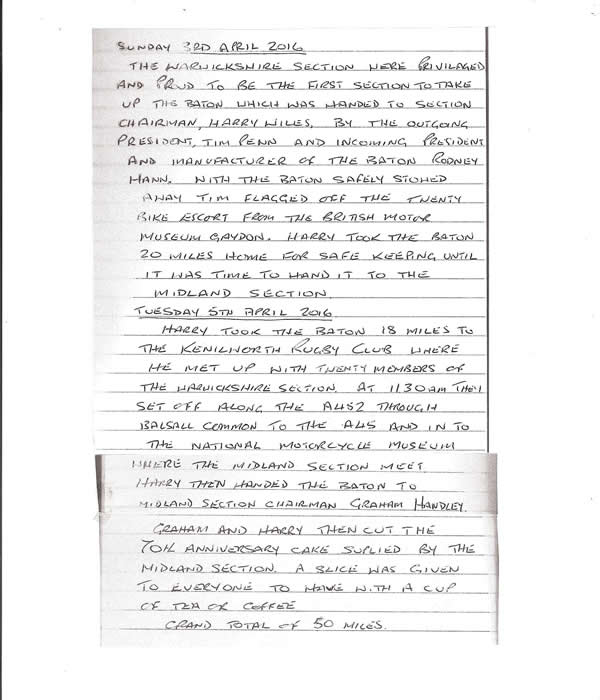 SUNDAY 3RD APRIL 2016
THE WARWICKSHIRE SECTION WERE PRIVILAGED
AND PRUD TO BE THE FIRST SECTION TO TAKE
UP THE BATON WHICH WAS HANDED TO SECTION
CHAIRMAN, HARRY WILES, BY THE OUTGOING
PRESIDENT, TIM PENN AND INCOMING PRESIDENT
AND MANUFACTURER OF THE BATON RODNEY
HANN. WITH THE BATON SAFELY STOWED
AWAY TIM FLAGGED OFF THE TWENTY
BIKE ESCORT FROM THE BRITISH MOTOR
MUSEUM GAYDON. HARRY TOOK THE BATON
20 MILES HOME FOR SAFE KEEPING UNTIL
IT WAS TIME TO HAND IT TO THE
MIDLAND SECTION
TUESDAY 5TH APRIL 2016
HARRY TOOK THE BATON 18 MILES TO
THE KENILWORTH RUGBY CLUB WHERE
HE MET UP WITH TWENTY MEMBERS OF
THE WARWICKSHIRE SECTION. AT 1130AM THEY
SET OFF ALONG THE A452 THROUGH
BALSALL COMMON TO THE A45 AND IN TO
THE NATIONAL MOTORCYCLE MUSEUM
WHERE THE MIDLAND SECTION MEET.
HARRY THEN HANDED THE BATON TO
MIDLAND SECTION CHAIRMAN GRAHAM HANDLEY.
GRAHAM AND HARRY THEN CUT THE
70th ANNIVERSARY CAKE SUPLIED BY THE
MIDLAND SECTION. A SLICE WAS GIVEN
TO EVERYONE TO HAVE WITH A CUP
OF TEA OR COFFEE
GRAND TOTAL OF 50 MILES.